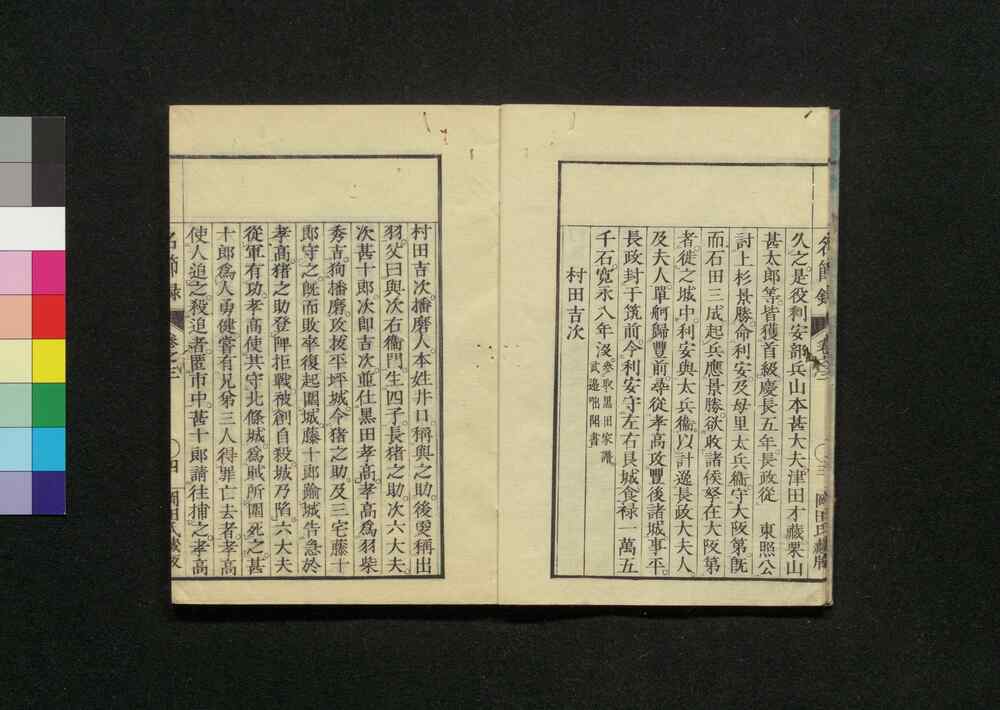 久之是役利安部兵山本甚大夫津田才藏栗山
甚太郎等皆獲首級慶長五年長政從　東照公
討上杉景勝命利安及母里太兵衞守大阪第既
而石田三成起兵應景勝欲收諸侯孥在大阪第
者徙之城中利安與太兵衞以計逸長政大夫人
及夫人單舸歸豐前尋從孝高攻豐後諸城事平
長政封于筑前令利安守左右良城食祿一萬五
千石寬永八年沒參取黑田家譜
武邊咄聞書
村田吉次
名節錄
卷之三
四
岡田氏藏版
村田吉次播磨人本姓井口稱與之助後更稱出
羽父曰與次右衞門生四子長猪之助次六大夫
次甚十郎次卽吉次並仕黑田孝高孝高爲羽柴
秀吉徇播磨攻拔平坪城令猪之助及三宅藤十
郎守之既而敗卒復起圍城藤十郎踰城告急於
孝高猪之助登陴拒戰被創自殺城乃陷六大夫
從軍有功孝高使其守北條城爲賊所圍死之甚
十郎爲人勇健嘗有兄弟三人得罪亡去者孝高
使人追之殺追者匿市中甚十郎請往捕之孝高